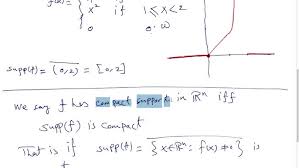 f(x)=
x² if 1≤x<2
0 0.w
supp(f) = \overline{(0,2)} = [0,2]
We say f has compact support in ℝⁿ iff
supp(f) is compact
That is if supp(f) = \overline{{x∈ℝⁿ: f(x)≠0}} is